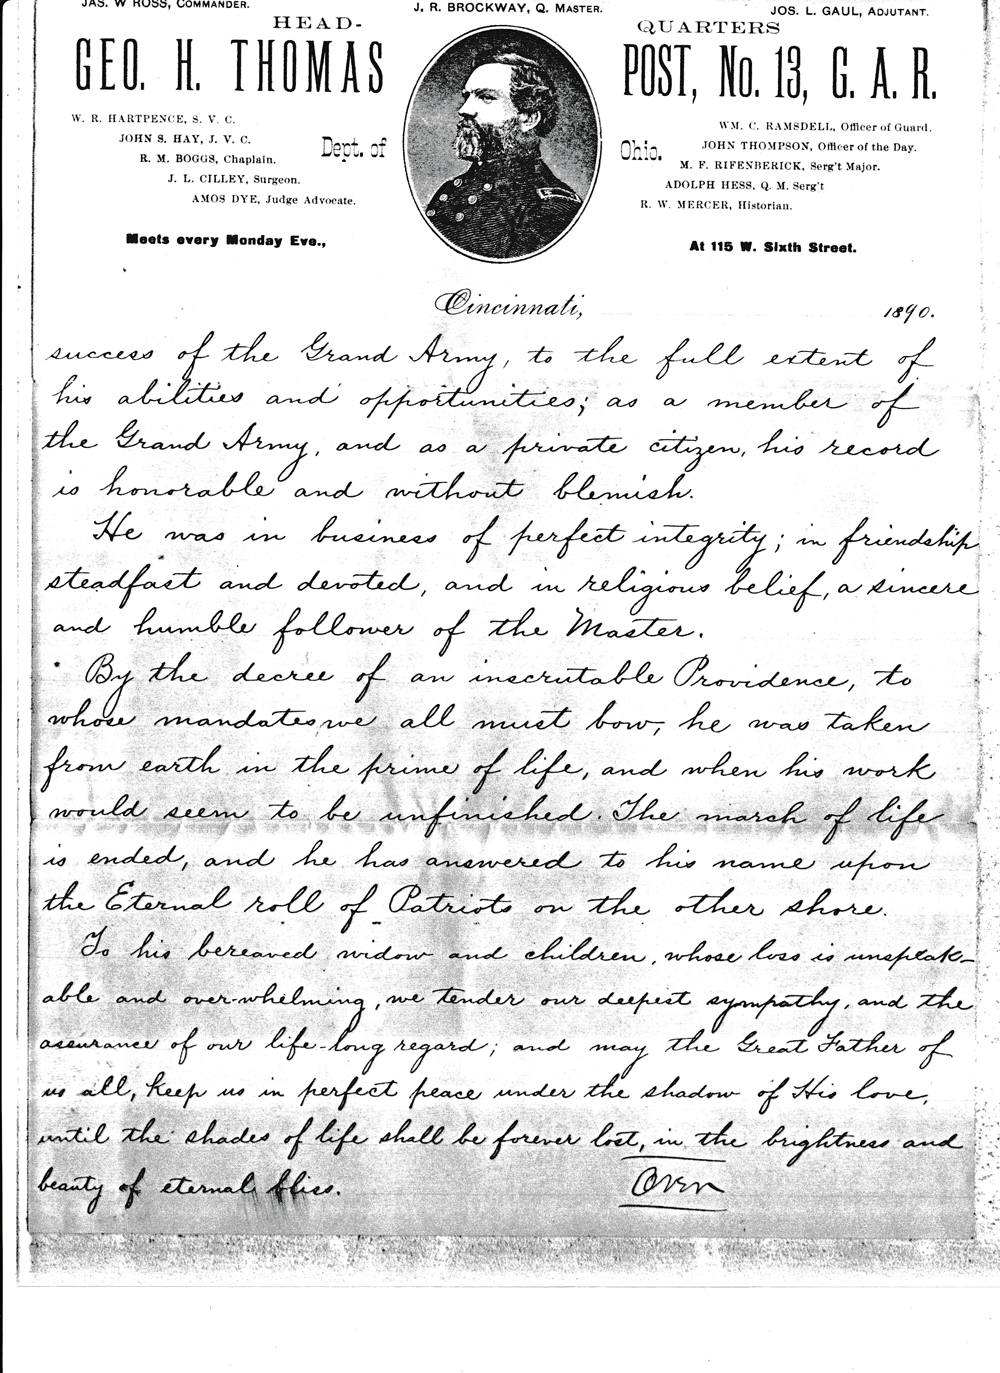 JAS. W ROSS, COMMANDER.
J. R. BROCKWAY, Q. MASTER.
JOS. L. GAUL, ADJUTANT.
HEAD-
QUARTERS
GEO. H. THOMAS
POST, No. 13, G. A. R.
W. R. HARTPENCE, S. V. C.
JOHN S. HAY, J. V. C.
R. M. BOGGS, Chaplain.
J. L. CILLEY, Surgeon.
AMOS DYE, Judge Advocate.
Dept. of
Ohio.
WM. C. RAMSDELL, Officer of Guard.
JOHN THOMPSON, Officer of the Day.
M. F. RIFENBERICK, Serg't Major.
ADOLPH HESS, Q. M. Serg't
R. W. MERCER, Historian.
Meets every Monday Eve.,
At 115 W. Sixth Street.
Cincinnati, 1890.
success of the Grand Army, to the full extent of
his abilities and opportunities; as a member of
the Grand Army, and as a private citizen, his record
is honorable and without blemish.
He was in business of perfect integrity; in friendship
steadfast and devoted, and in religious belief, a sincere
and humble follower of the Master.
By the decree of an inscrutable Providence, to
whose mandates we all must bow, he was taken
from earth in the prime of life, and when his work
would seem to be unfinished. The march of life
is ended, and he has answered to his name upon
the Eternal roll of Patriots on the other shore.
To his bereaved widow and children, whose loss is unspeak-
able and over-whelming, we tender our deepest sympathy, and the
assurance of our life-long regard; and may the Great Father of
us all, keep us in perfect peace under the shadow of His love,
until the shades of life shall be forever lost, in the brightness and
beauty of eternal bliss.
Over